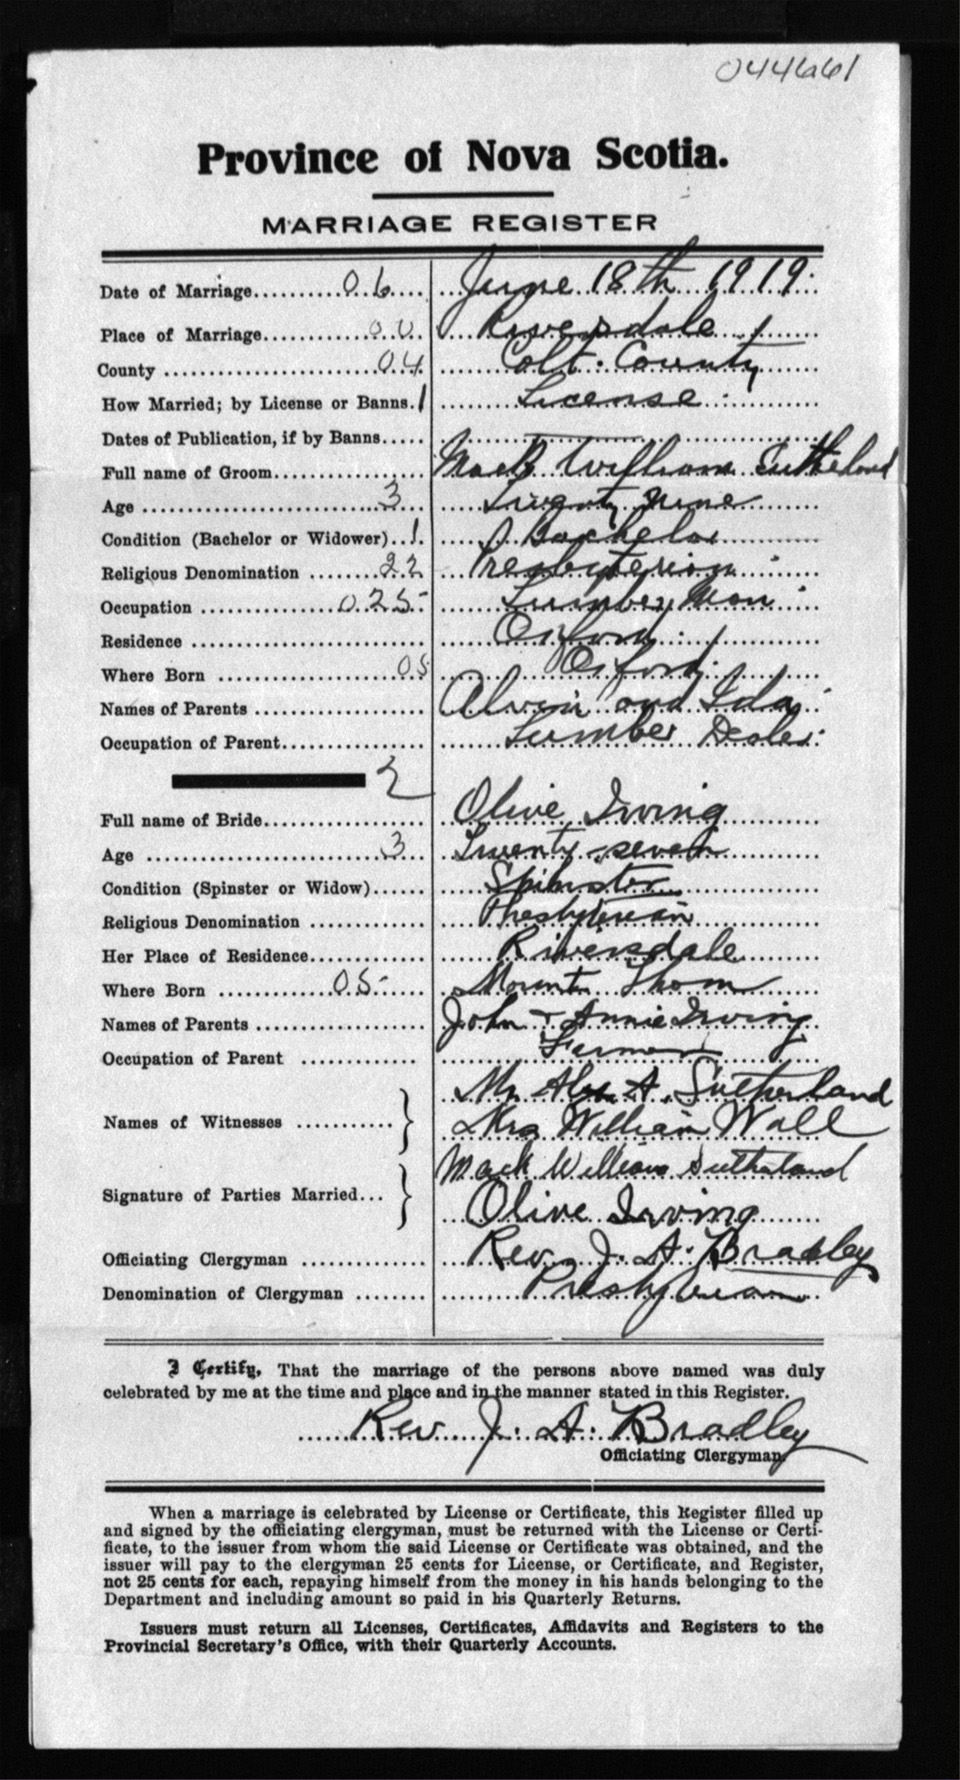 044661
Province of Nova Scotia.
MARRIAGE REGISTER
Date of Marriage 06 June 18th 1919
Place of Marriage 00 Riversdale
County 04 Colt. County
How Married; by License or Banns. 1 License
Dates of Publication, if by Banns
Full name of Groom Mack William Sutherland
Age 3 Twenty nine
Condition (Bachelor or Widower) 1 Bachelor
Religious Denomination 22 Presbyterian
Occupation 025 Lumber Man
Residence Oxford
Where Born 05 Oxford
Names of Parents Alvin and Ida
Occupation of Parent Lumber Dealer
2
Full name of Bride Olive Irving
Age 3 Twenty-seven
Condition (Spinster or Widow) Spinster
Religious Denomination Presbyterian
Her Place of Residence Riversdale
Where Born 05 Mount Thom
Names of Parents John + Annie Irving
Occupation of Parent Farmer
Names of Witnesses Mr Alex A. Sutherland
Mrs William Wall
Signature of Parties Married Mack William Sutherland
Olive Irving
Officiating Clergyman Rev. J. A. Bradley
Denomination of Clergyman Presbyterian
I Certify, That the marriage of the persons above named was duly
celebrated by me at the time and place and in the manner stated in this Register.
Rev. J. A. Bradley
Officiating Clergyman.
When a marriage is celebrated by License or Certificate, this Register filled up
and signed by the officiating clergyman, must be returned with the License or Certi-
ficate, to the issuer from whom the said License or Certificate was obtained, and the
issuer will pay to the clergyman 25 cents for License, or Certificate, and Register,
not 25 cents for each, repaying himself from the money in his hands belonging to the
Department and including amount so paid in his Quarterly Returns.
Issuers must return all Licenses, Certificates, Affidavits and Registers to the
Provincial Secretary's Office, with their Quarterly Accounts.